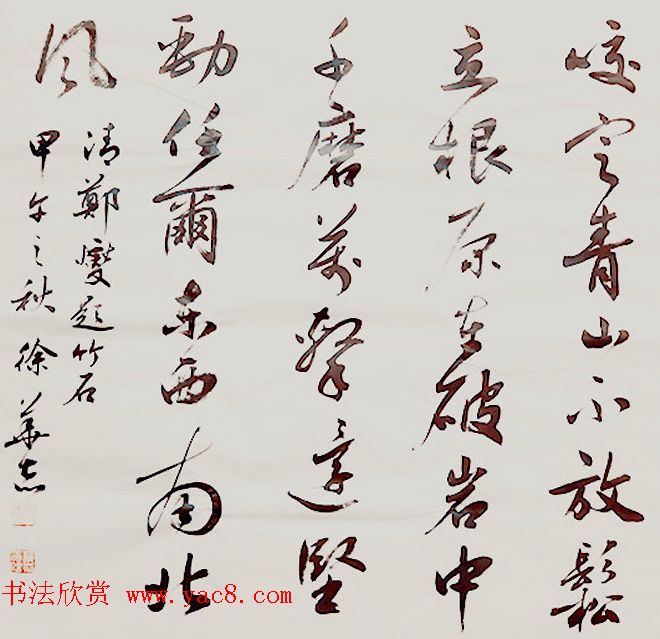 咬定青山不放鬆
立根原在破岩中
千磨萬擊還堅
勁任爾東西南北
風
清鄭燮題竹石
甲午之秋徐華志
书法欣赏 www.yac8.com